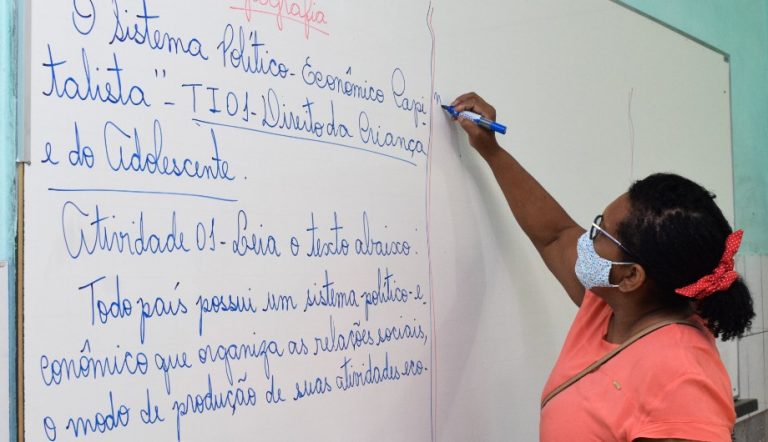 Geografia
O Sistema Político-Econômico Capi-
talista" - TI01-Direito da Criança
e do Adolescente.
Atividade 01- Leia o texto abaixo:
Todo país possui um sistema político-e-
conômico que organiza as relações sociais,
o modo de produção de suas atividades eco-
n